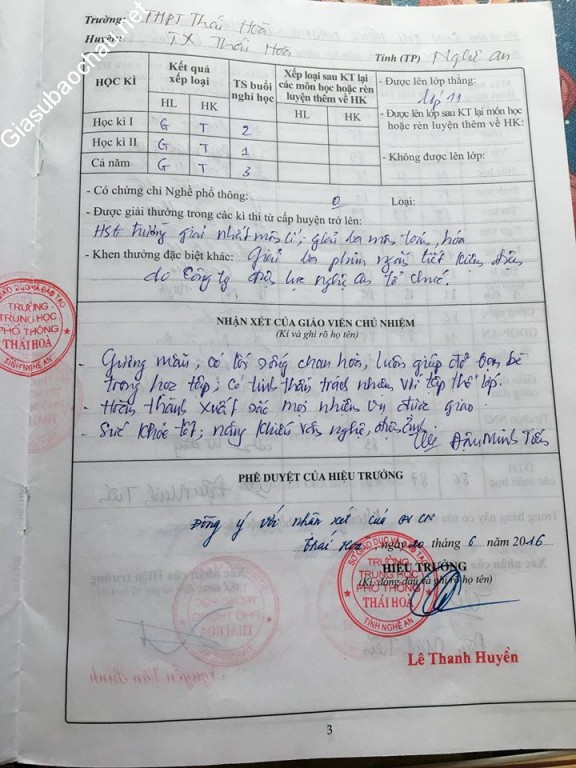 Trường: THPT Thái Hoà
Huyện: TX Thái Hoà Tỉnh (TP) Nghệ An
HỌC KÌ
Kết quả xếp loại
HL HK
TS buổi nghỉ học
Xếp loại sau KT lại các môn học hoặc rèn luyện thêm về HK
HL HK
- Được lên lớp thẳng:
lớp 11
- Được lên lớp sau KT lại môn học hoặc rèn luyện thêm về HK:
- Không được lên lớp:
Học kì I G T 2
Học kì II G T 1
Cả năm G T 3
- Có chứng chỉ Nghề phổ thông: 0 Loại:
- Được giải thưởng trong các kì thi từ cấp huyện trở lên:
HSG trường giải nhất môn lí; giải ba môn toán, hóa
- Khen thưởng đặc biệt khác: Giải ba phim ngắn tiết kiệm điện
do Công ty điện lực nghệ An tổ chức.
NHẬN XÉT CỦA GIÁO VIÊN CHỦ NHIỆM
(Kí và ghi rõ họ tên)
- Gương mẫu, có lối sống chan hoà, luôn giúp đỡ bạn bè
trong học tập; có tinh thần trách nhiệm với tập thể lớp.
- Hoàn thành xuất sắc mọi nhiệm vụ được giao.
- Sức khỏe tốt; năng khiếu văn nghệ, điện ảnh.
Đậu Minh Tiến
PHÊ DUYỆT CỦA HIỆU TRƯỞNG
Đồng ý với nhận xét của GVCN
Thái Hoà, ngày 20 tháng 6 năm 2016
HIỆU TRƯỞNG
(Kí, đóng dấu và ghi rõ họ tên)
SỞ GIÁO DỤC VÀ ĐÀO TẠO
TRƯỜNG
TRUNG HỌC
PHỔ THÔNG
THÁI HOÀ
TỈNH NGHỆ AN
Lê Thanh Huyền
3
TRƯỜNG
TRUNG HỌC
PHỔ THÔNG
THÁI HOÀ
TỈNH NGHỆ AN
Giasubaochau.net